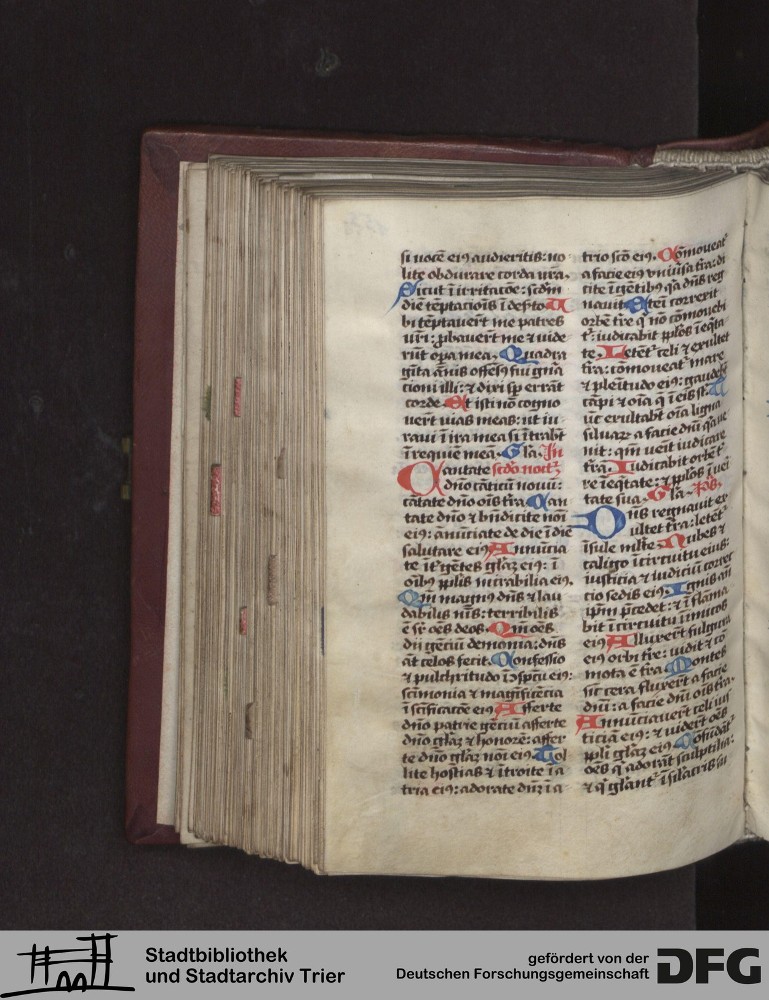 si uocē eiꝯ audieritis: no
lite obdurare corda vr̄a.
Sicut ī irritacōe: scd̄m
diē tēptacioīs ī deẜto A
bi tēptauer̄t me patres
vr̄i: ꝓbauer̄t me ⁊ uide
rūt oꝑa mea. Quadra
gīta ānis offēsꝯ fui gn̄a
cioni illi: ⁊ dixi sꝑ errāt
corde. Et isti nō cogno
uer̄t uias meas: ut iu
raui ī ira mea si ītrabt̄
ī requiē meā. Gl̄a. In
Cantate scd̄o noct̄
dn̄o cāticū nouū:
cātate dn̄o oīs tr̄a. Can
tate dn̄o ⁊ bn̄dicite noī
eiꝯ: anūciate de die ī diē
salutare eiꝯ. Annūcia
te īt̄ gētes gl̄aꝫ eiꝯ: ī
oībꝯ pp̄lis mirabilia eiꝯ.
Qm̄ magnꝯ dn̄s ⁊ lau
dabilis nīs: terribilis
ē sr̄ oēs deos. Qm̄ oēs
dii gēciū demonia: dn̄s
āt celos fecit. Confessio
⁊ pulchritudo ī ꝯspc̄u eiꝯ:
scīmonia ⁊ magificēcia
ī sc̄ificacōe eiꝯ. Afferte
dn̄o patrie gēciū afferte
dn̄o gl̄aꝫ ⁊ honorē: affer
te dn̄o gl̄aꝫ noī eiꝯ. Tol
lite hostias ⁊ ītroite ī a
tria eiꝯ: adorate dn̄ꝫ ī a
trio sc̄o eiꝯ. Cōmoueat᷑
a facie eiꝯ vniūsa tr̄a: di
cite ī gētibꝯ qa dn̄s reg
nauit. Eteī correxit
orbē tr̄e q̄ nō cōmouebi
t᷑: iudicabit pp̄los ī eq̄ta
te. Letēt᷑ celi ⁊ exultet
tr̄a: cōmoueat᷑ mare
⁊ plēitudo eiꝯ: gaudebt̄
cāpi ⁊ oīa q̄ ī eis st̄. T
ūc exultabt̄ oīa ligna
siluaꝝ a facie dn̄i qa ue
nit: qm̄ ueīt iudicare
tr̄a. Iudicabit orbē t̄
re ī eq̄tate: ⁊ pp̄los ī ūi
tate sua. Gl̄a. P̄s
Dn̄s regnauit ex
ultet tr̄a: letēt᷑
īsule mlt̄e. Nubes ⁊
caligo ī circuitu eius:
iusticia ⁊ iudiciū correc
cio sedis eiꝯ. Ignis an̄
ip̄m p̄cedet: ⁊ ī flāma
bit ī circuitu inimicos
eiꝯ. Alluxer̄t fulgura
eiꝯ orbi tr̄e: uidit ⁊ cō
mota ē tr̄a. Montes
sic̄ cera fluxer̄t a facie
dn̄i: a facie dn̄i oīs tr̄a.
Annūciauer̄t celi ius
ticiā eiꝯ: ⁊ uider̄t oēs
pp̄li gl̄aꝫ eiꝯ. Cōfūdāt᷑
oēs q̄ adorāt sculptilia:
⁊ q̄ gl̄ant᷑ ī silac̄is su
Stadtbibliothek
und Stadtarchiv Trier
gefördert von der
Deutschen Forschungsgemeinschaft
DFG